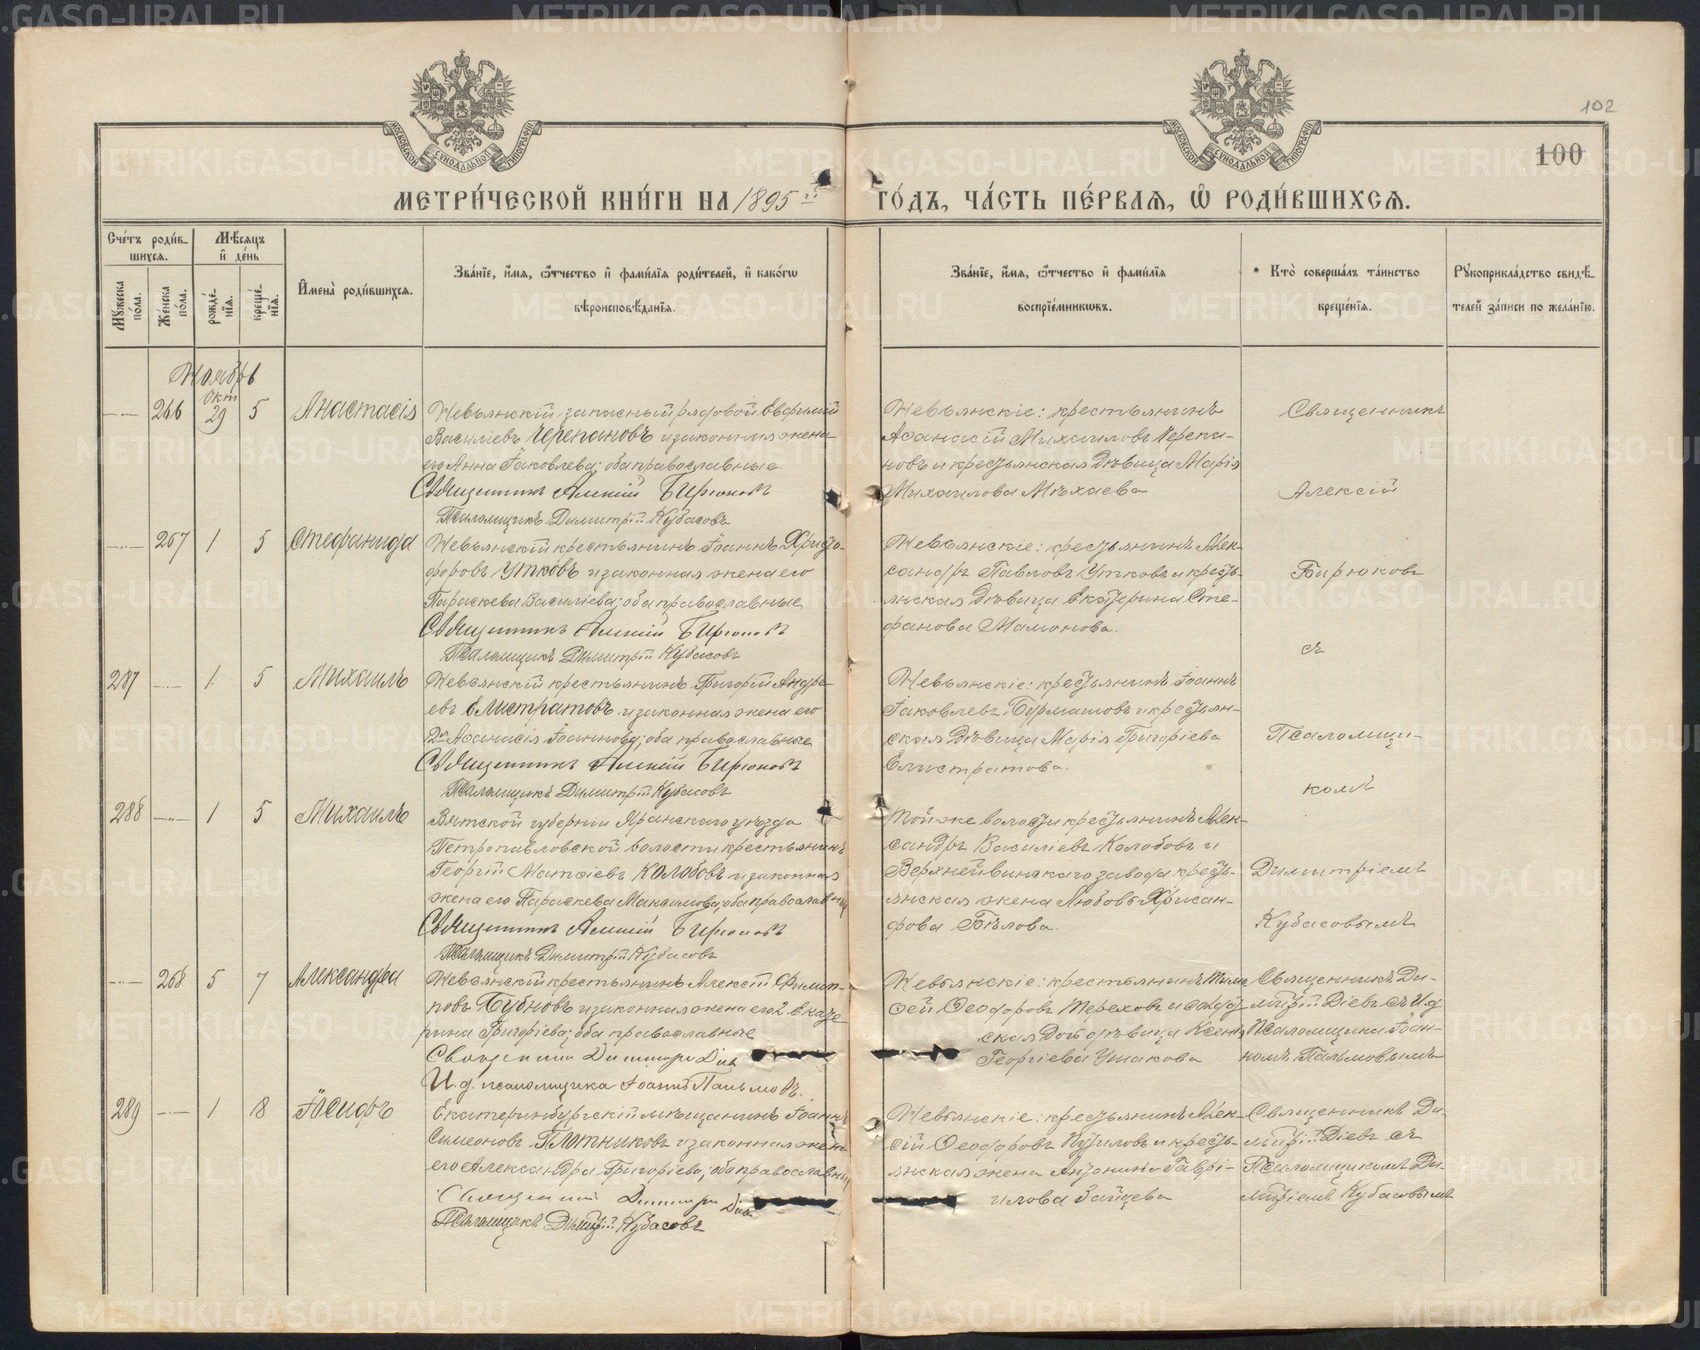 102
100
МОСКОВСКОЙ СѴНОДАЛЬНОЙ ТИПОГРАФІИ
МОСКОВСКОЙ СѴНОДАЛЬНОЙ ТИПОГРАФІИ
МЕТРИ́ЧЕСКОЙ КНИ́ГИ НА 1895 й ГО́ДЪ, ЧА́СТЬ ПЕ́РВАѦ, Ѡ РОДИ́ВШИХСѦ.
Сче́тъ роди́вшихся.
Мѣ́сяцъ и де́нь
Мꙋ́жеска по́ла.
Же́нска по́ла.
рожде́нїя.
креще́нїя.
Имена̀ роди́вшихся.
Зва́нїе, и́мя, ѻ҆́тчество и҆ фами́лїя роди́телей, и҆ како́гѡ
вѣроисповѣ́данїя.
Зва́нїе, и́мя, ѻ҆́тчество и҆ фами́лїя
воспрїе́мникѡвъ.
Кто̀ соверша́лъ та́инство
креще́нїя.
Рꙋкоприкла́дство свидѣ́телей за́писи по жела́нїю.
Ноябрь
266 Окт 29 5 Анастасія
Невьянскій запасный рядовой Евфимій
Василіевъ Черепановъ и законная жена
его Анна Іаковлева; оба православные.
Священникъ Алексій Бирюковъ
Псаломщикъ Димитрій Кубасовъ
Невьянскіе: крестьянинъ
Аѳанасій Михаиловъ Черепановъ и крестьянская дѣвица Марія
Михаилова Мѣхаева
Священникъ
Алексій
267 1 5 Стефанида
Невьянскій крестьянинъ Іоаннъ Христофоровъ Утковъ и законная жена его
Параскева Василіева; оба православные
Священникъ Алексій Бирюковъ
Псаломщикъ Димитрій Кубасовъ
Невьянскіе: крестьянинъ Александръ Павловъ Утковъ и крестьянская дѣвица Екатерина Стефанова Мамонова.
Бирюковъ
съ
287 1 5 Михаилъ
Невьянскій крестьянинъ Григорій Андреевъ Елистратовъ и законная жена его
2я Аѳанасія Іоаннова; оба православные
Священникъ Алексій Бирюковъ
Псаломщикъ Димитрій Кубасовъ
Невьянскіе: крестьянинъ Іоаннъ
Іаковлевъ Бурмашовъ и крестьянская дѣвица Марія Григоріева
Елистратова.
Псаломщикомъ
288 1 5 Михаилъ
Вятской губерніи Яранскаго уѣзда
Петропавловской волости крестьянинъ
Георгій Матѳіевъ Колобовъ и законная
жена его Параскева Максимова; оба православны
Священникъ Алексій Бирюковъ
Псаломщикъ Димитрій Кубасовъ
Той же волости крестьянинъ Александръ Василіевъ Колобовъ и
Верхнейвинскаго завода крестьянская жена Любовь Хрисанфова Бѣлова.
Димитріемъ
Кубасовымъ
268 5 7 Александра
Невьянскій крестьянинъ Алексій Филипповъ Бубновъ и законная жена его 2 Екатерина Григоріева; оба православные
Священникъ Димитрій Діев
И. д. псаломщика Іоаннъ Пальмовъ.
Невьянскіе: крестьянинъ Тимоѳей Ѳеодоровъ Тереховъ и
дѣвица Ксенія
Георгіева Ушакова
Священникъ Димитрій Діевъ съ И. д.
Псаломщика Іоанномъ Пальмовымъ
289 1 18 Іосифъ
Екатеринбургскій мѣщанинъ Іоаннъ
Симеоновъ Плотниковъ и законная жена
его Александра Григоріева; оба православны
Священникъ Димитрій Діев
Псаломщикъ Димитрій Кубасовъ
Невьянскіе: крестьянинъ Алексій Ѳеодоровъ и крестьянская жена Антонина Гавріилова Зайцева
Священникъ Димитрій Діевъ съ
Псаломщикомъ Димитріемъ Кубасовымъ
METRIKI.GASO-URAL.RU